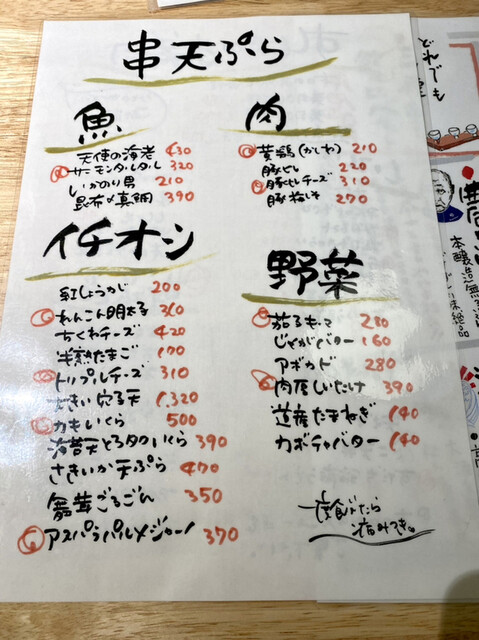 串天ぷら
魚
天使の海老 430
サーモンタルタル 320
いかのり男 210
昆布〆真鯛 390
肉
黄鶏(かしわ) 210
豚ヒレ 220
豚ヒレチーズ 310
豚梅しそ 270
イチオシ
紅しょうが 200
れんこん明太子 360
ちくわチーズ 420
半熟たまご 170
トリプルチーズ 310
大きい穴子天 1.320
カキいくら 500
海苔天とろタクいくら 390
さきいか天ぷら 470
舞茸ごろごろ 350
アスパラパルメジャーノ 370
野菜
茄子もって 230
じゃがバター 160
アボカド 280
肉厚しいたけ 390
道産たまねぎ 140
カボチャバター 140
一度食べたら
病みつき。
どれでも
本醸造